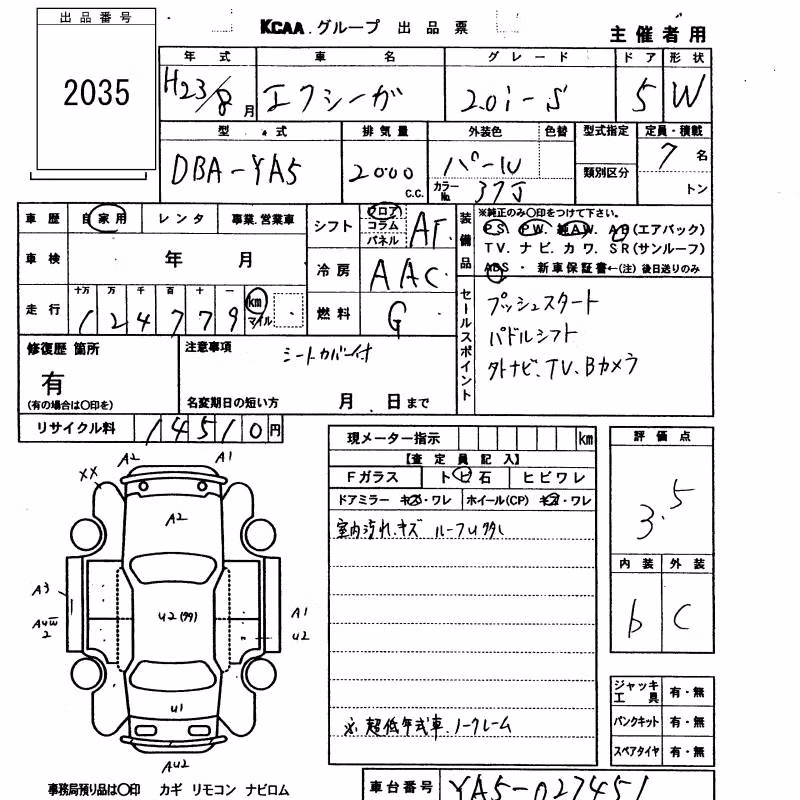 出品番号
2035
KCAA.グループ 出品票
主催者用
年式 車名 グレード ドア 形状
H23/8月 エクシーガ 2.0i-S 5 W
型式 排気量 外装色 色替 型式指定 定員・積載
DBA-YA5 2000 C.C. パール カラーNo. 37J 類別区分 7名 トン
車歴 自家用 レンタ 事業.営業車
車検 年 月
走行 十万 万 千 百 十 一
124779 km マイル
シフト フロア コラム パネル AT
冷房 AAC
燃料 G
装備品 ※純正のみ〇印をつけて下さい。
PS. PW. 純AW. AB(エアバック)
TV. ナビ. カワ. SR(サンルーフ)
ABS・新車保証書←(注)後日送りのみ
セールスポイント
プッシュスタート
パドルシフト
外ナビ、TV、Bカメラ
修復歴 箇所
有
(有の場合は〇印を)
注意事項
シートカバー付
名変期日の短い方 月 日まで
リサイクル料 14510円
現メーター指示 km
【査定員記入】
Fガラス トビ石 ヒビワレ
ドアミラー キズ・ワレ ホイール(CP) キズ・ワレ
室内汚れ.キズ ルーフU99し
※超低年式車.ノークレーム
評価点
3.5
内装 外装
b C
ジャッキ工具 有・無
パンクキット 有・無
スペアタイヤ 有・無
A2 A1
XX
A2
A3
U2(99)
A1
U2
AUW
2
U1
AU2
事務局預り品は〇印 カギ リモコン ナビロム
車台番号 YA5-027451